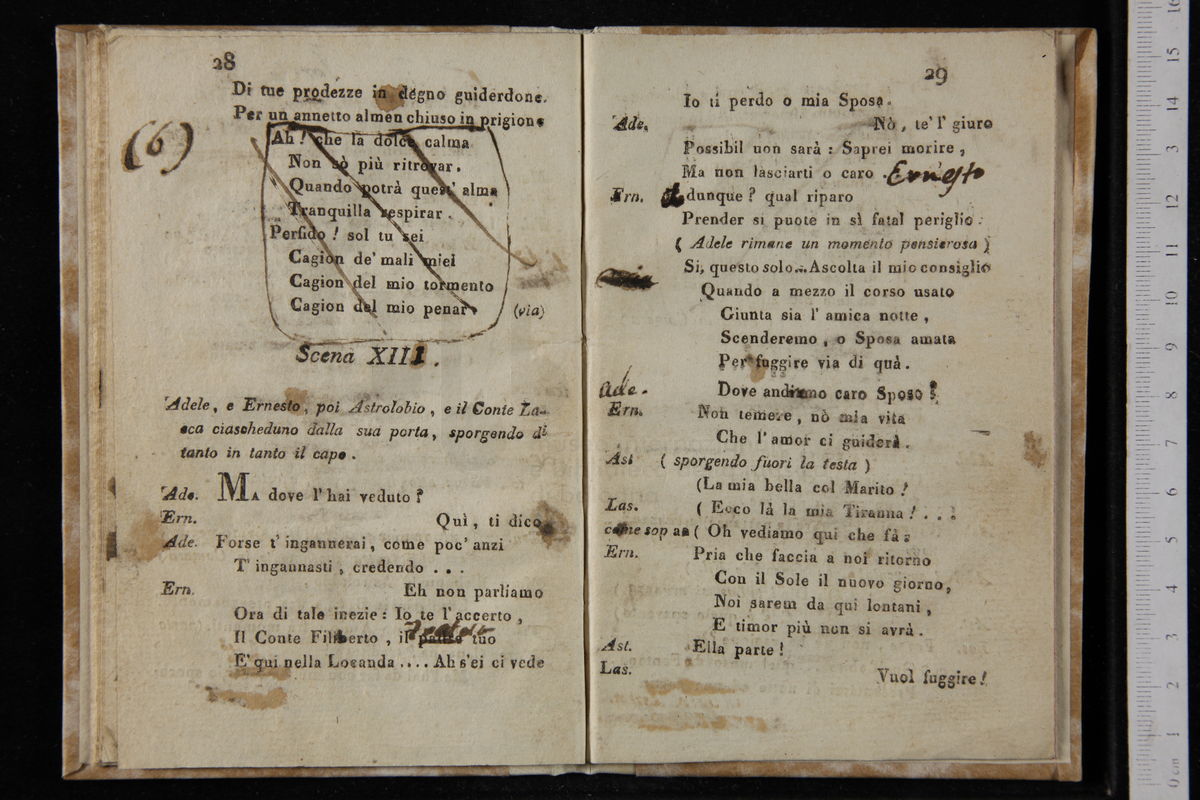 28
Di tue prodezze in degno guiderdone.
Per un annetto almen chiuso in prigione
(6)
Ah! che la dolce calma
Non sò più ritrovar.
Quando potrà quest' alma
Tranquilla respirar.
Perfido! sol tu sei
Cagion de' mali miei
Cagion del mio tormento
Cagion del mio penar (via)
Scena XIII.
Adele, e Ernesto, poi Astrolobio, e il Conte La-
sca ciascheduno dalla sua porta, sporgendo di
tanto in tanto il capo.
Ade. MA dove l'hai veduto?
Ern. Quì, ti dico
Ade. Forse t' ingannerai, come poc' anzi
T' ingannasti, credendo . . .
Ern. Eh non parliamo
Ora di tale inezie: Io te l'accerto,
Il Conte Filiberto, il tuo
E' qui nella Locanda .... Ah s'ei ci vede
29
Io ti perdo o mia Sposa.
Ade. Nò, te'l' giuro
Possibil non sarà: Saprei morire,
Ma non lasciarti o caro Ernesto
Ern. dunque? qual riparo
Prender si puote in sì fatal periglio.
( Adele rimane un momento pensierosa )
Si, questo solo... Ascolta il mio consiglio
Quando a mezzo il corso usato
Giunta sia l' amica notte,
Scenderemo, o Sposa amata
Per fuggire via di quà.
Ade. Dove andiamo caro Sposo?
Ern. Non temere, nò mia vita
Che l'amor ci guiderà.
Ast ( sporgendo fuori la testa )
(La mia bella col Marito!
Las. ( Ecco là la mia Tiranna! . . .
come sop aa ( Oh vediamo qui che fà:
Ern. Pria che faccia a noi ritorno
Con il Sole il nuovo giorno,
Noi sarem da qui lontani,
E timor più non si avrà.
Ast. Ella parte!
Las. Vuol fuggire!
16
15
14
3
12
11
10
9
8
7
6
5
4
3
2
1
0 cm